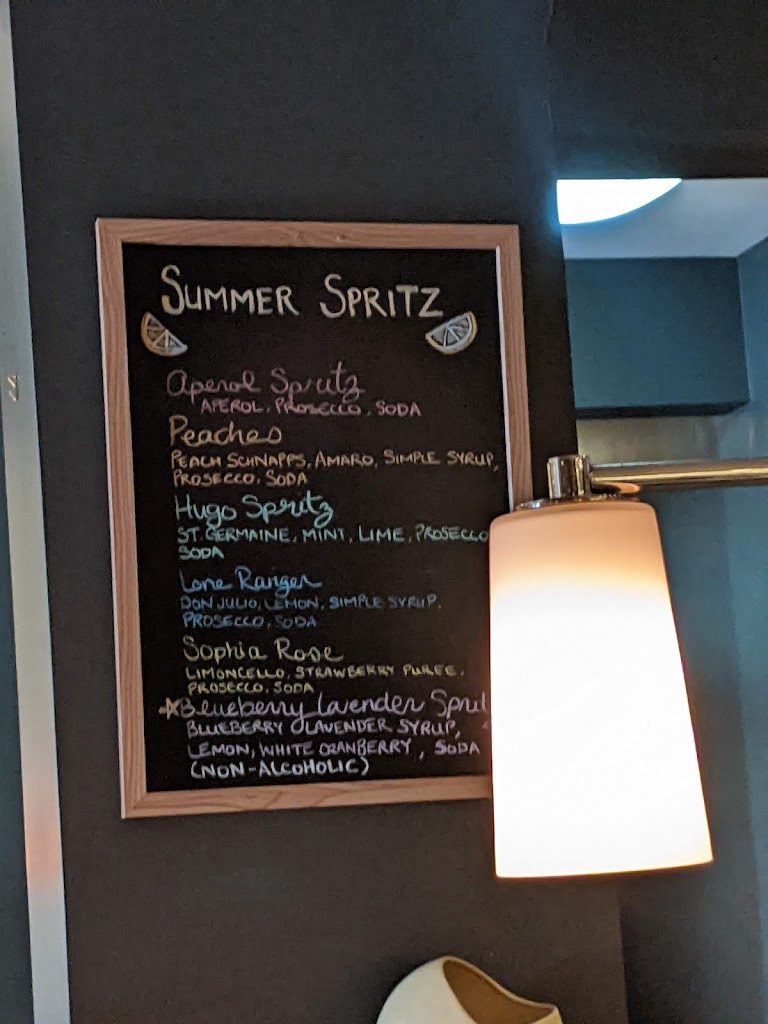 SUMMER SPRITZ
Aperol Spritz
APEROL, PROSECCO, SODA
Peaches
PEACH SCHNAPPS, AMARO, SIMPLE SYRUP,
PROSECCO, SODA
Hugo Spritz
ST. GERMAINE, MINT, LIME, PROSECCO
SODA
Lone Ranger
DON JULIO, LEMON, SIMPLE SYRUP,
PROSECCO, SODA
Sophia Rose
LIMONCELLO, STRAWBERRY PUREE,
PROSECCO, SODA
Blueberry Lavender
BLUEBERRY LAVENDER SYRUP,
LEMON, WHITE CRANBERRY, SODA
(NON-ALCOHOLIC)